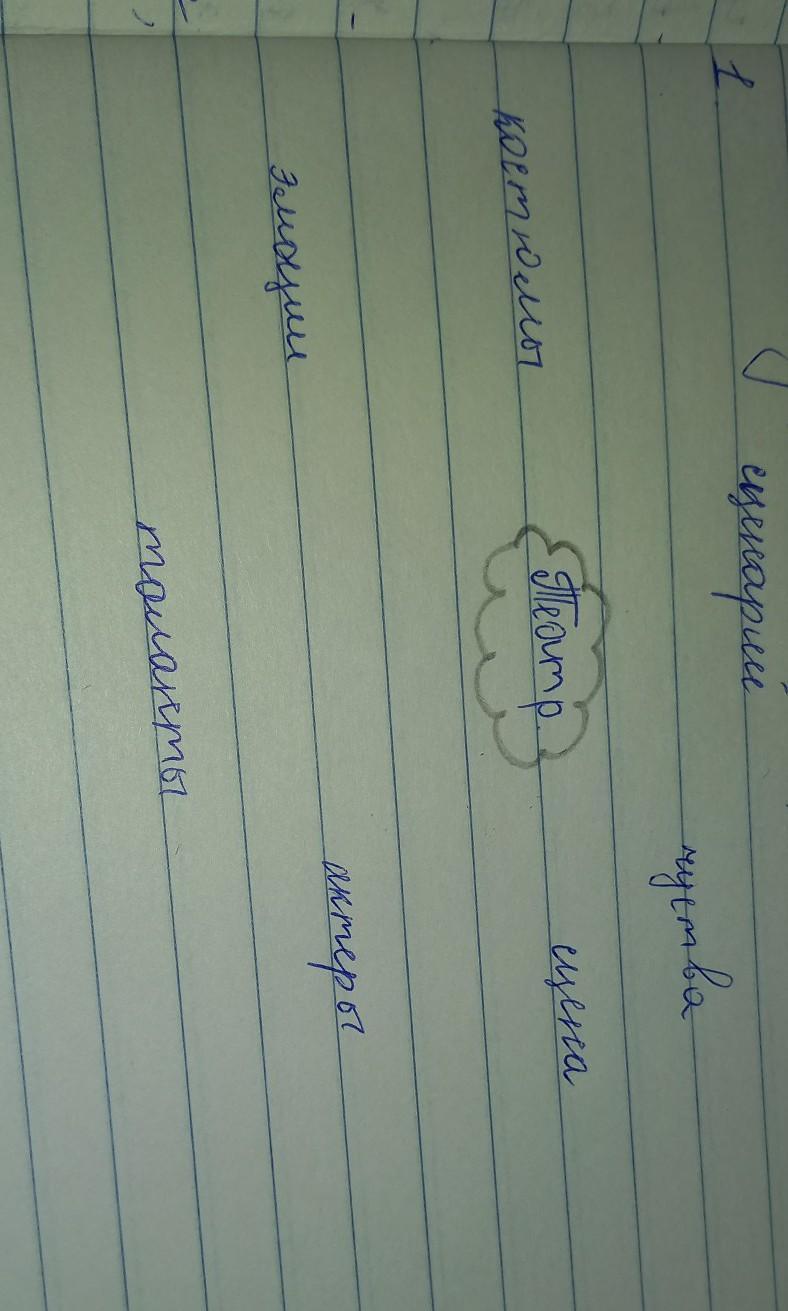 1
сценарий
чуства
костюмы
Театр
сцена
эмоции
актеры
таланты